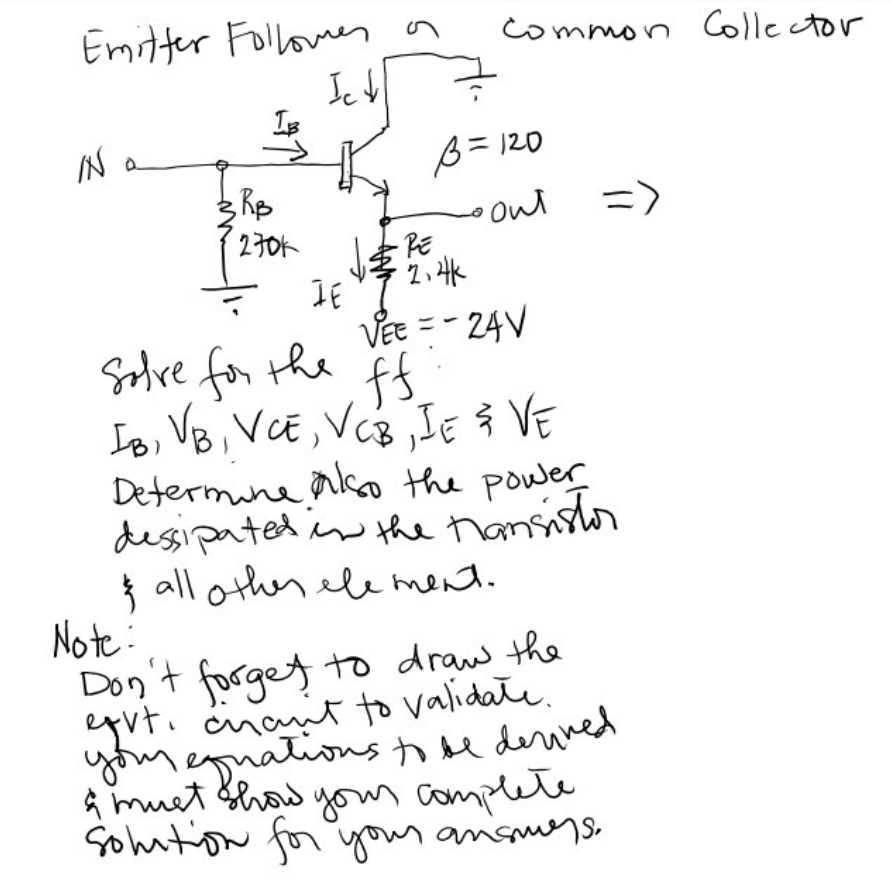 Emitter Follower or Common Collector
Ic
IB
IN
β = 120
RB
270k
out =>
RE
2.4k
IE
VEE = - 24V
Solve for the ff:
IB, VB, VCE, VCB, IE & VE
Determine also the power
dessipated in the transistor
& all other element.
Note:
Don't forget to draw the
eqvt. circuit to validate.
your equations to be derived
& must show your complete
solution for your answers.